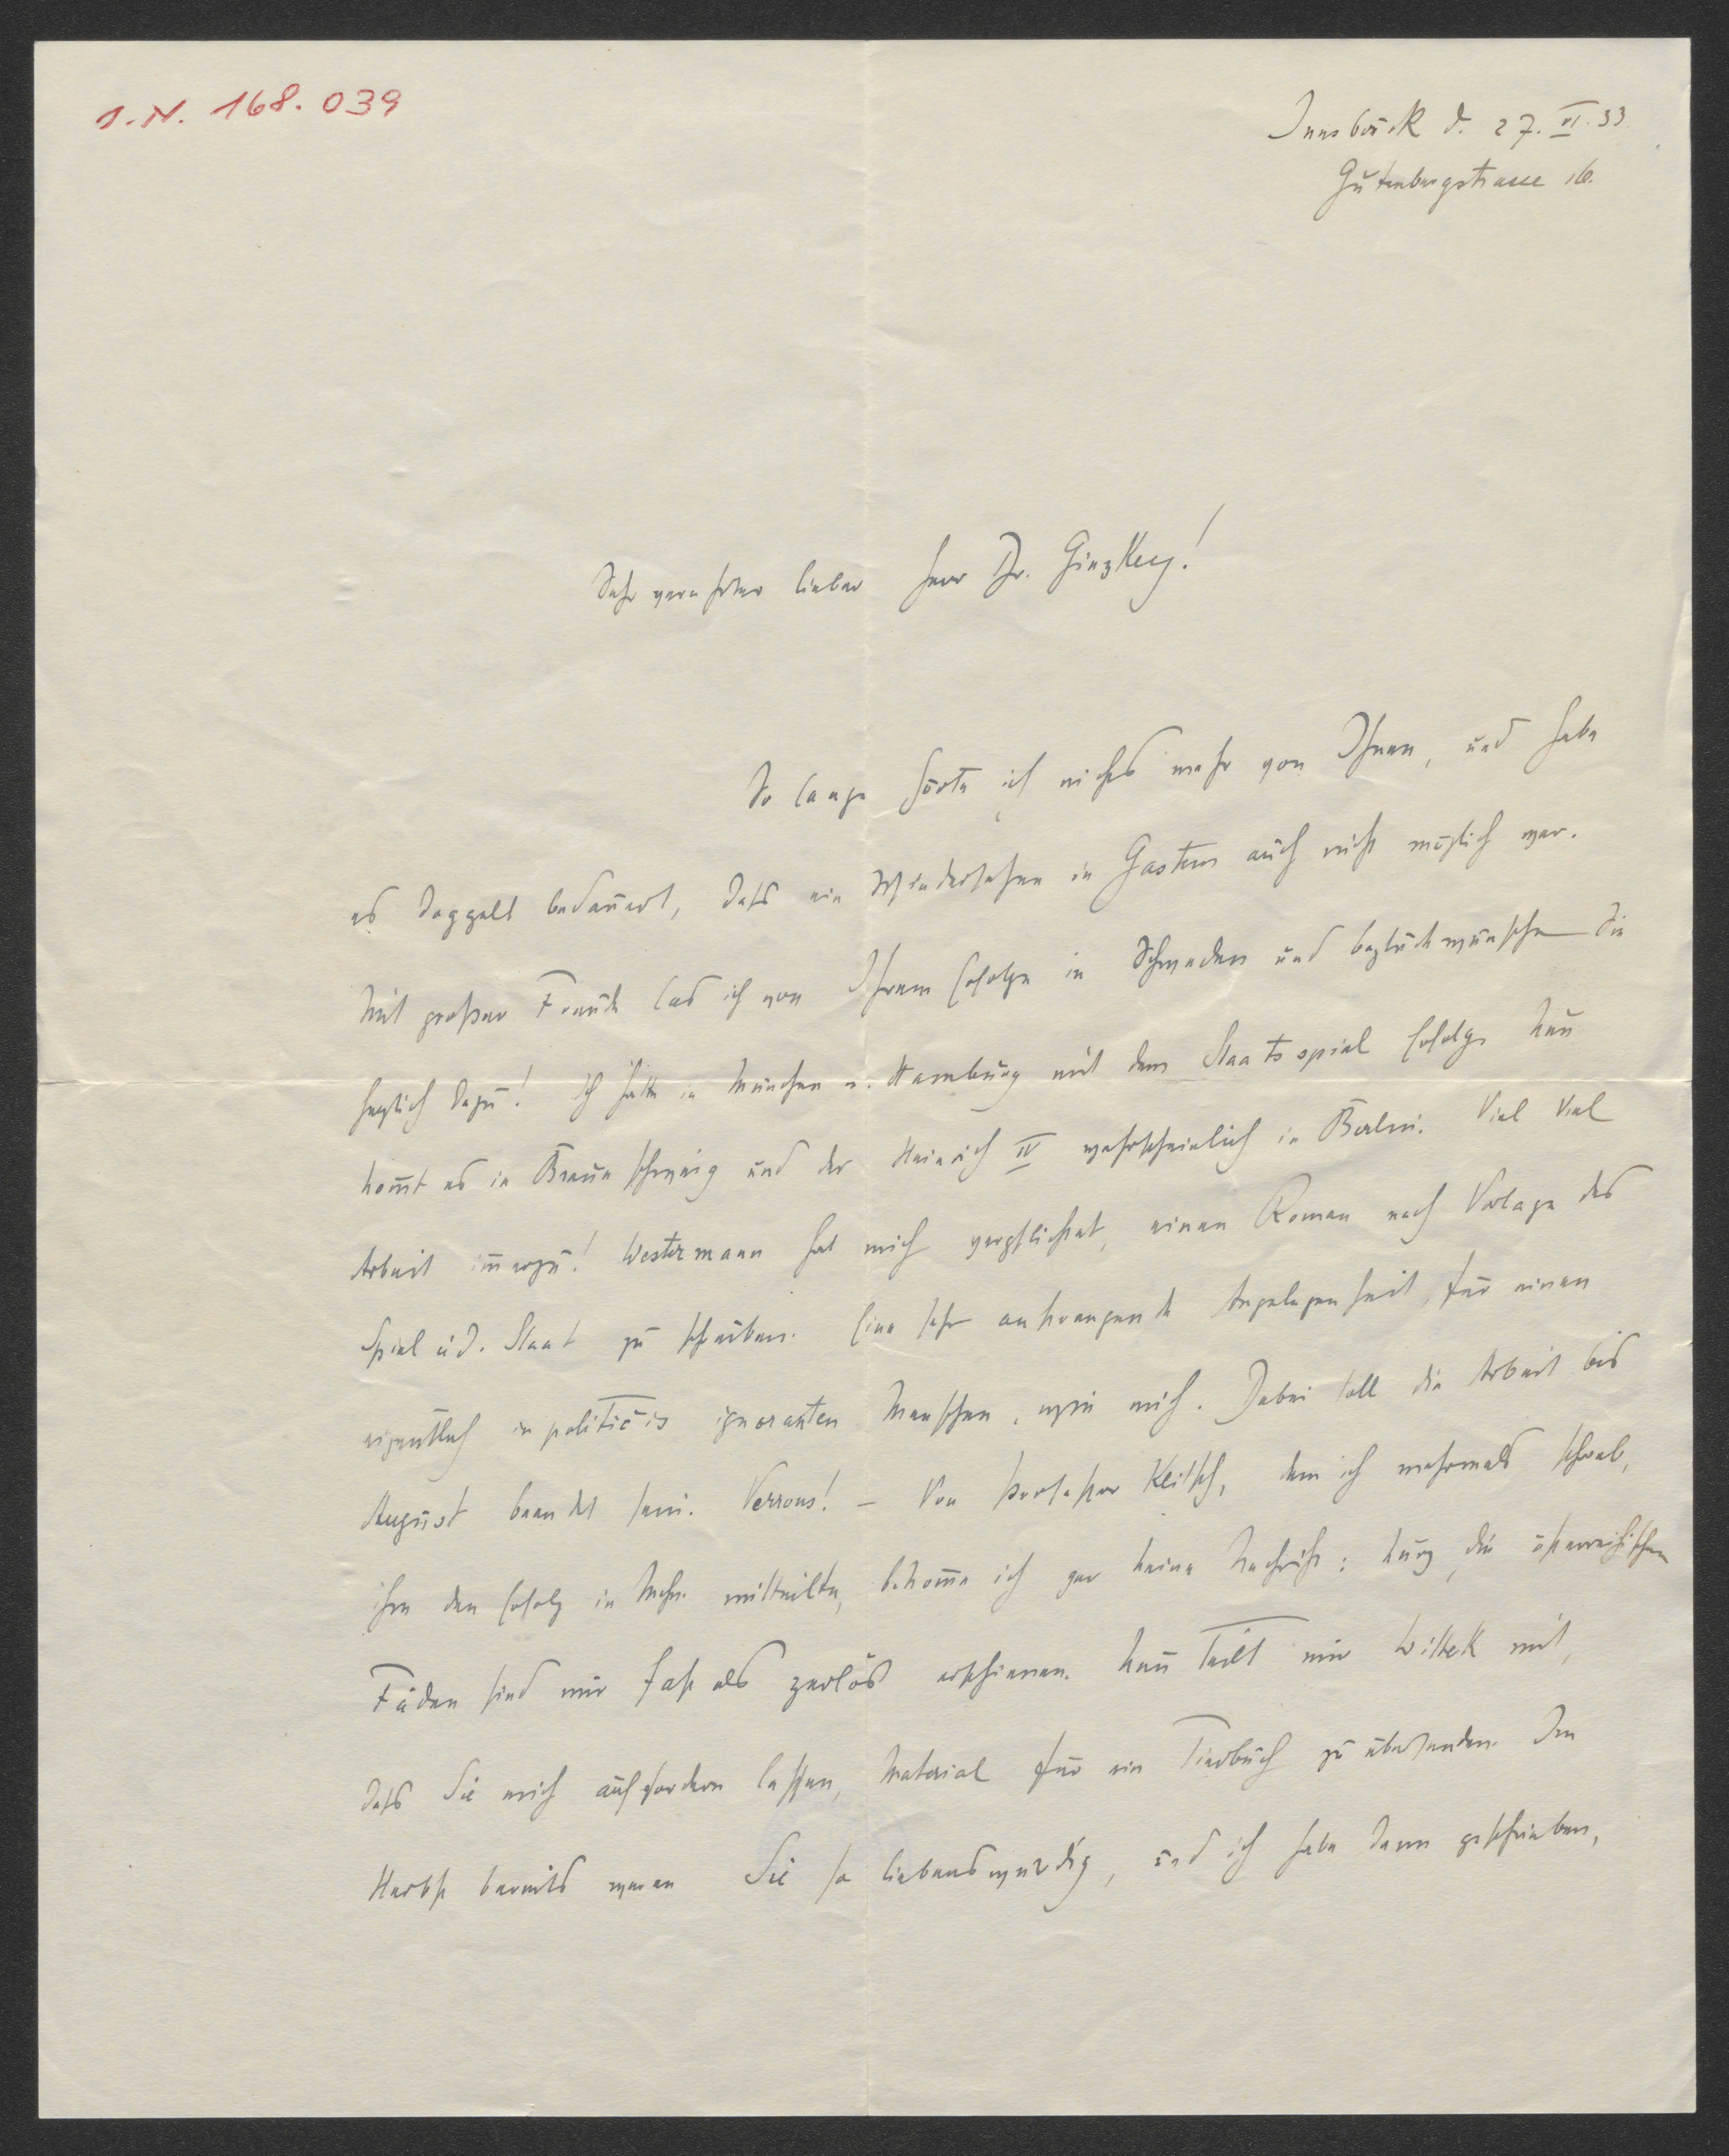 I.N. 168.039
Innsbruck d. 27. VI. 33
Gutenbergstrasse 16.
Sehr verehrter lieber Herr Dr. Ginzkey!
So lange hörte ich nichts mehr von Ihnen, und habe
es doppelt bedauert, dass ein Wiedersehen in Gastein auch nicht möglich war.
Mit grosser Freude las ich von Ihrem Erfolge in Schweden und beglückwünsche Sie
herzlich dazu! Ich hatte in München u. Hamburg mit dem Staatsspiel Erfolg. Nun
kom̄t es in Braunschweig und der Heinrich IV wahrscheinlich in Berlin. Viel Viel
Arbeit im̄erzu! Westermann hat mich verpflichtet, einen Roman nach Vorlage des
Spiel ü d. Staat zu schreiben. Eine sehr anstrengende Angelegenheit, für einen
eigentlich in politicis ignoranten Menschen, wie mich. Dabei soll die Arbeit bis
August beendet sein. Verrons! – Von Professor Klitsch, dem ich mehrmals schrieb,
ihm den Erfolg in Mchn. mitteilte, bekom̄e ich gar keine Nachricht: kurz, die österreichischen
Fäden sind mir fast als zerlöst erschienen. Nun teilt mir Wittek mit,
dass Sie mich auffordern lassen, Material für ein Tierbuch zu übersenden. Im
Herbst bereits waren Sie so liebenswürdig, und ich habe dann geschrieben,